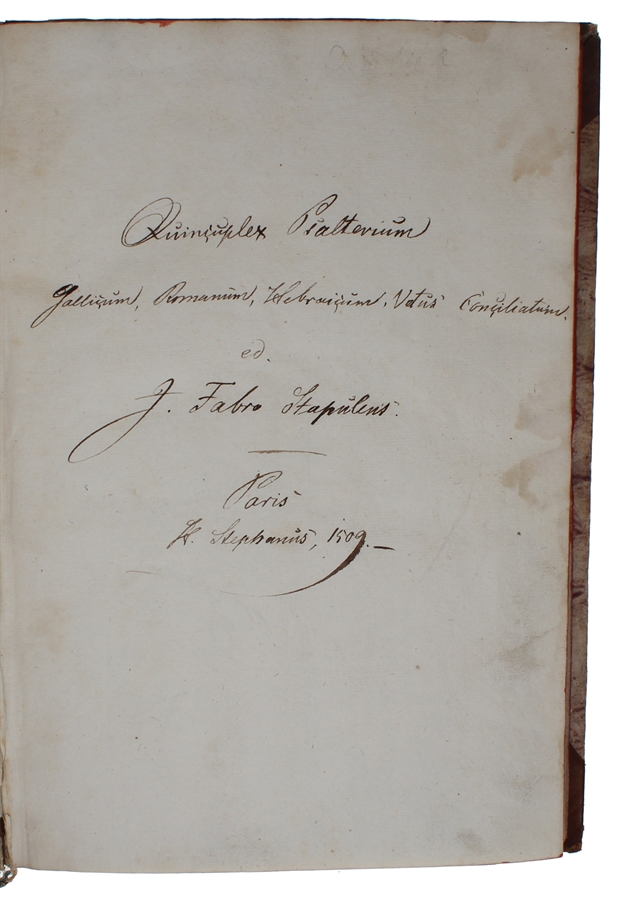 Quincuplex Psalterium
Gallicum, Romanum, Hebraicum, Vetus Conciliatum.
ed.
J. Fabro Stapulens.
Paris
H. Stephanus, 1509.